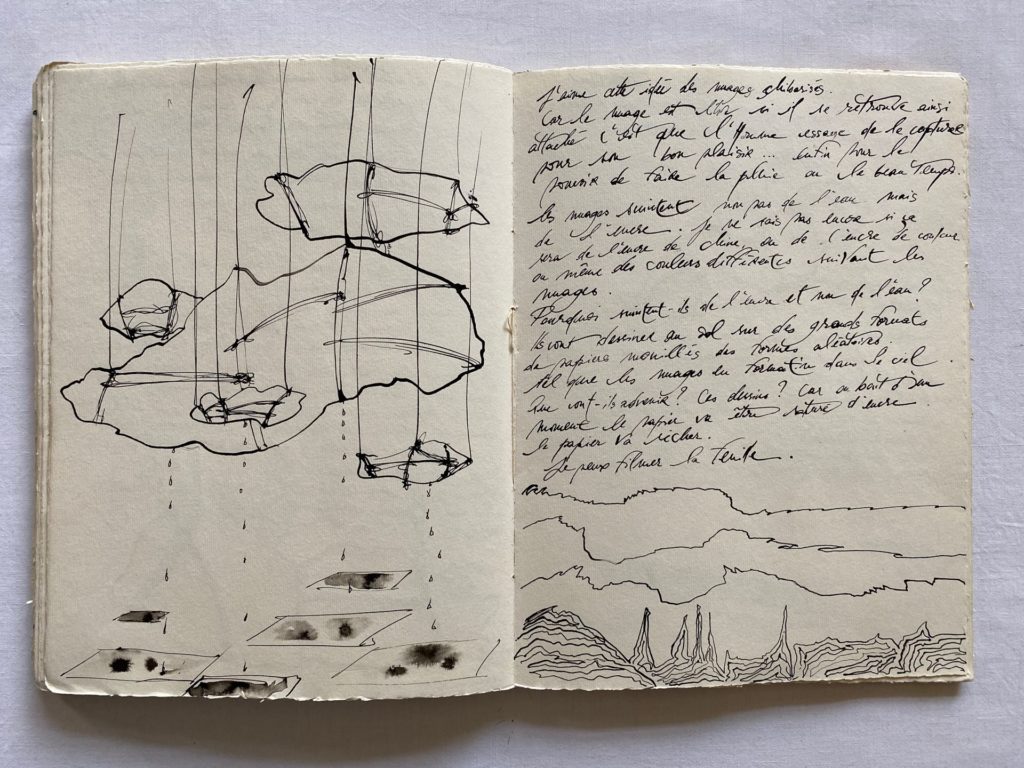 J'aime cette idée des nuages
Car le nuage est libre si il se retrouve ainsi
attaché c'est que l'Homme essaye de le capturer
pour son bon plaisir... enfin pour le
pouvoir de faire la pluie ou le beau temps.
Les nuages suintent non pas de l'eau mais
de l'encre. Je ne sais pas encore si ça
sera de l'encre de chine, ou de l'encre de couleur
ou même des couleurs différentes suivant les
nuages.
Pourquoi suintent-ils de l'encre et non de l'eau?
Ils vont dessiner au sol sur des grands formats
de papiers mouillés des formes aléatoires.
tel que les nuages en formation dans le ciel.
Que vont-ils advenir? Ces dessins? Car au bout d'un
moment le papier va être saturé d'encre.
le papier va sécher.
Je peux filmer la